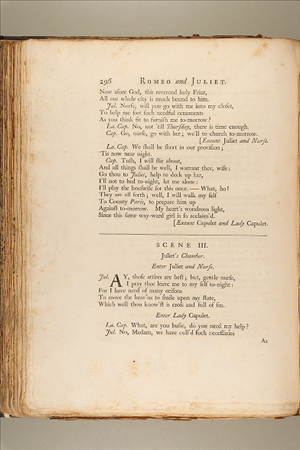 296 ROMEO and JULIET.
Now afore God, this reverend holy Friar,
All our whole city is much bound to him.
Jul. Nurse, will you go with me into my closet,
To help me sort such needful ornaments
As you think fit to furnish me to-morrow?
La. Cap. No, not 'till Thursday, there is time enough.
Cap. Go, nurse, go with her; we'll to church to-morrow.
[Exeunt Juliet and Nurse.
La. Cap. We shall be short in our provision;
'Tis now near night.
Cap. Tush, I will stir about,
And all things shall be well, I warrant thee, wife:
Go thou to Juliet, help to deck up her,
I'll not to bed to-night, let me alone:
I'll play the houswife for this once. —— What, ho!
They are all forth; well, I will walk my self
To County Paris, to prepare him up
Against to-morrow. My heart's wondrous light,
Since this same way-ward girl is so reclaim'd.
[Exeunt Capulet and Lady Capulet.
SCENE III.
Juliet's Chamber.
Enter Juliet and Nurse.
Jul. AY, those attires are best; but, gentle nurse,
I pray thee leave me to my self to-night:
For I have need of many orisons
To move the heav'ns to smile upon my state,
Which well thou know'st is cross and full of sin.
Enter Lady Capulet.
La. Cap. What, are you busie, do you need my help?
Jul. No, Madam, we have cull'd such necessaries
As